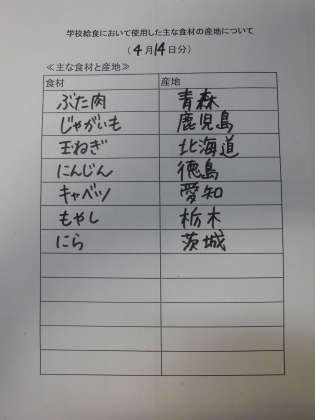 学校給食において使用した主な食材の産地について
(4月14日分)
≪主な食材と産地≫
食材 産地
ぶた肉 青森
じゃがいも 鹿児島
玉ねぎ 北海道
にんじん 徳島
キャベツ 愛知
もやし 栃木
にら 茨城